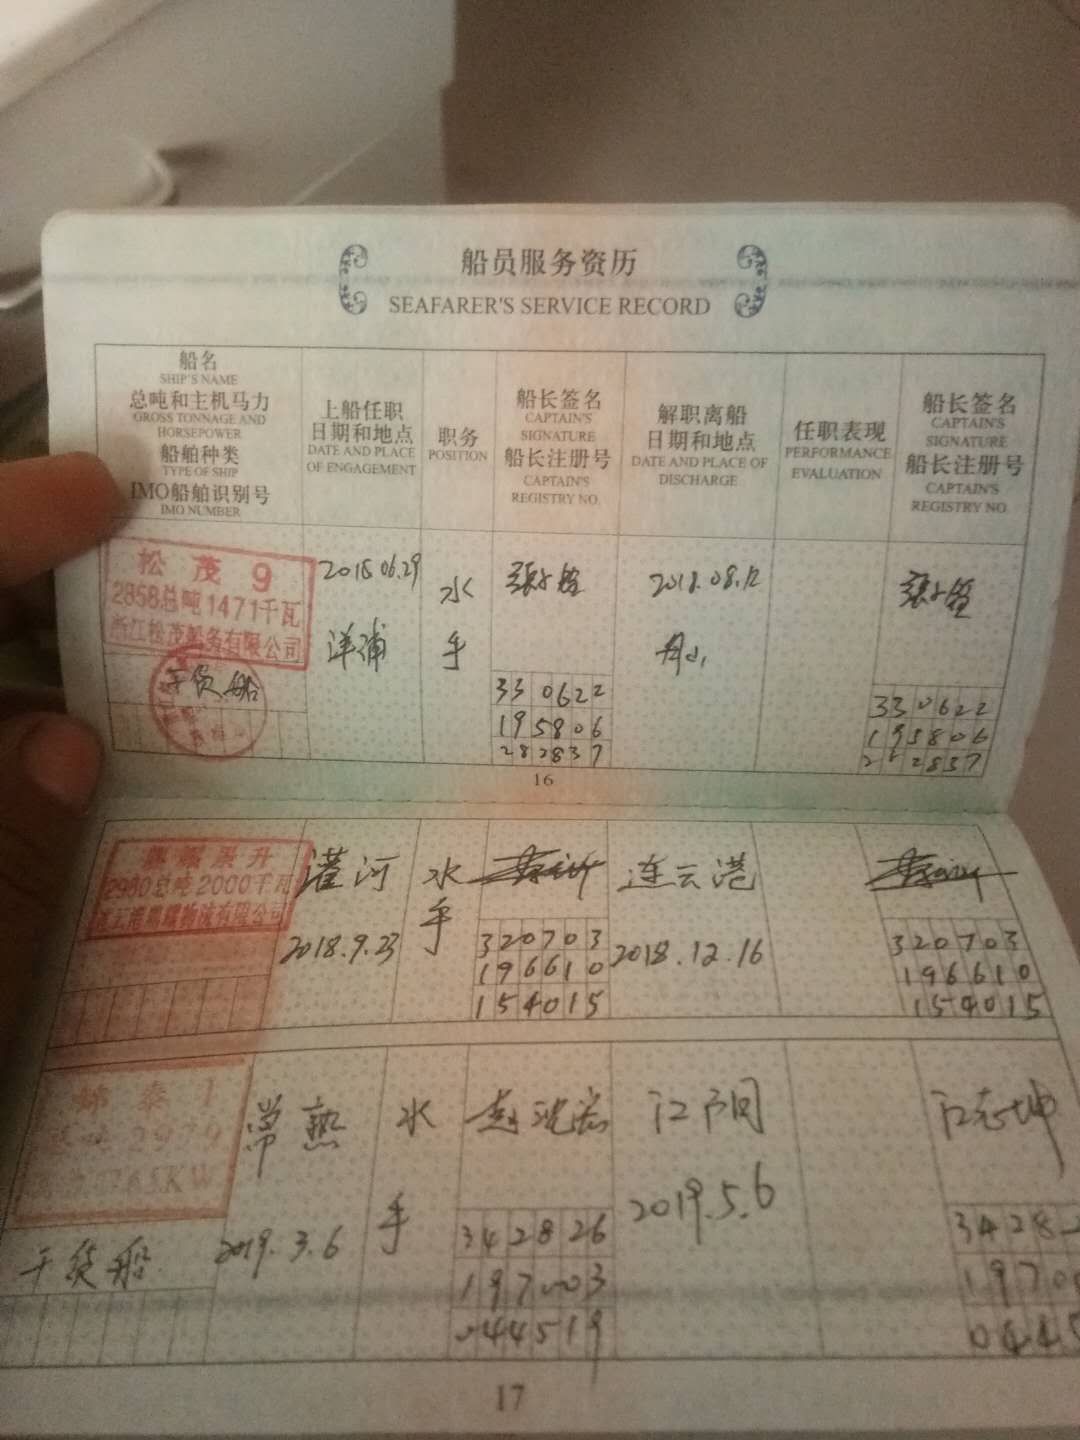 船员服务资历
SEAFARER'S SERVICE RECORD
船名
SHIP'S NAME
总吨和主机马力
GROSS TONNAGE AND
HORSEPOWER
船舶种类
TYPE OF SHIP
IMO船舶识别号
IMO NUMBER
上船任职
日期和地点
DATE AND PLACE
OF ENGAGEMENT
职务
POSITION
船长签名
CAPTAIN'S
SIGNATURE
船长注册号
CAPTAIN'S
REGISTRY NO.
解职离船
日期和地点
DATE AND PLACE OF
DISCHARGE
任职表现
PERFORMANCE
EVALUATION
船长签名
CAPTAIN'S
SIGNATURE
船长注册号
CAPTAIN'S
REGISTRY NO.
松茂9
2858总吨1471千瓦
浙江松茂船务有限公司
干货船
2018.06.29
洋浦
水
手
330622
195806
282837
2018.08.12
舟山
330622
195806
2837
16
升
2980总吨2000千瓦
物流有限公司
灌河
2018.9.23
水
手
320703
196610
154015
连云港
2018.12.16
320703
196610
154015
泰1
2979
KW
干货船
常熟
2019.3.6
水
手
342826
197003
044519
江阴
2019.5.6
3428
1970
0445
17